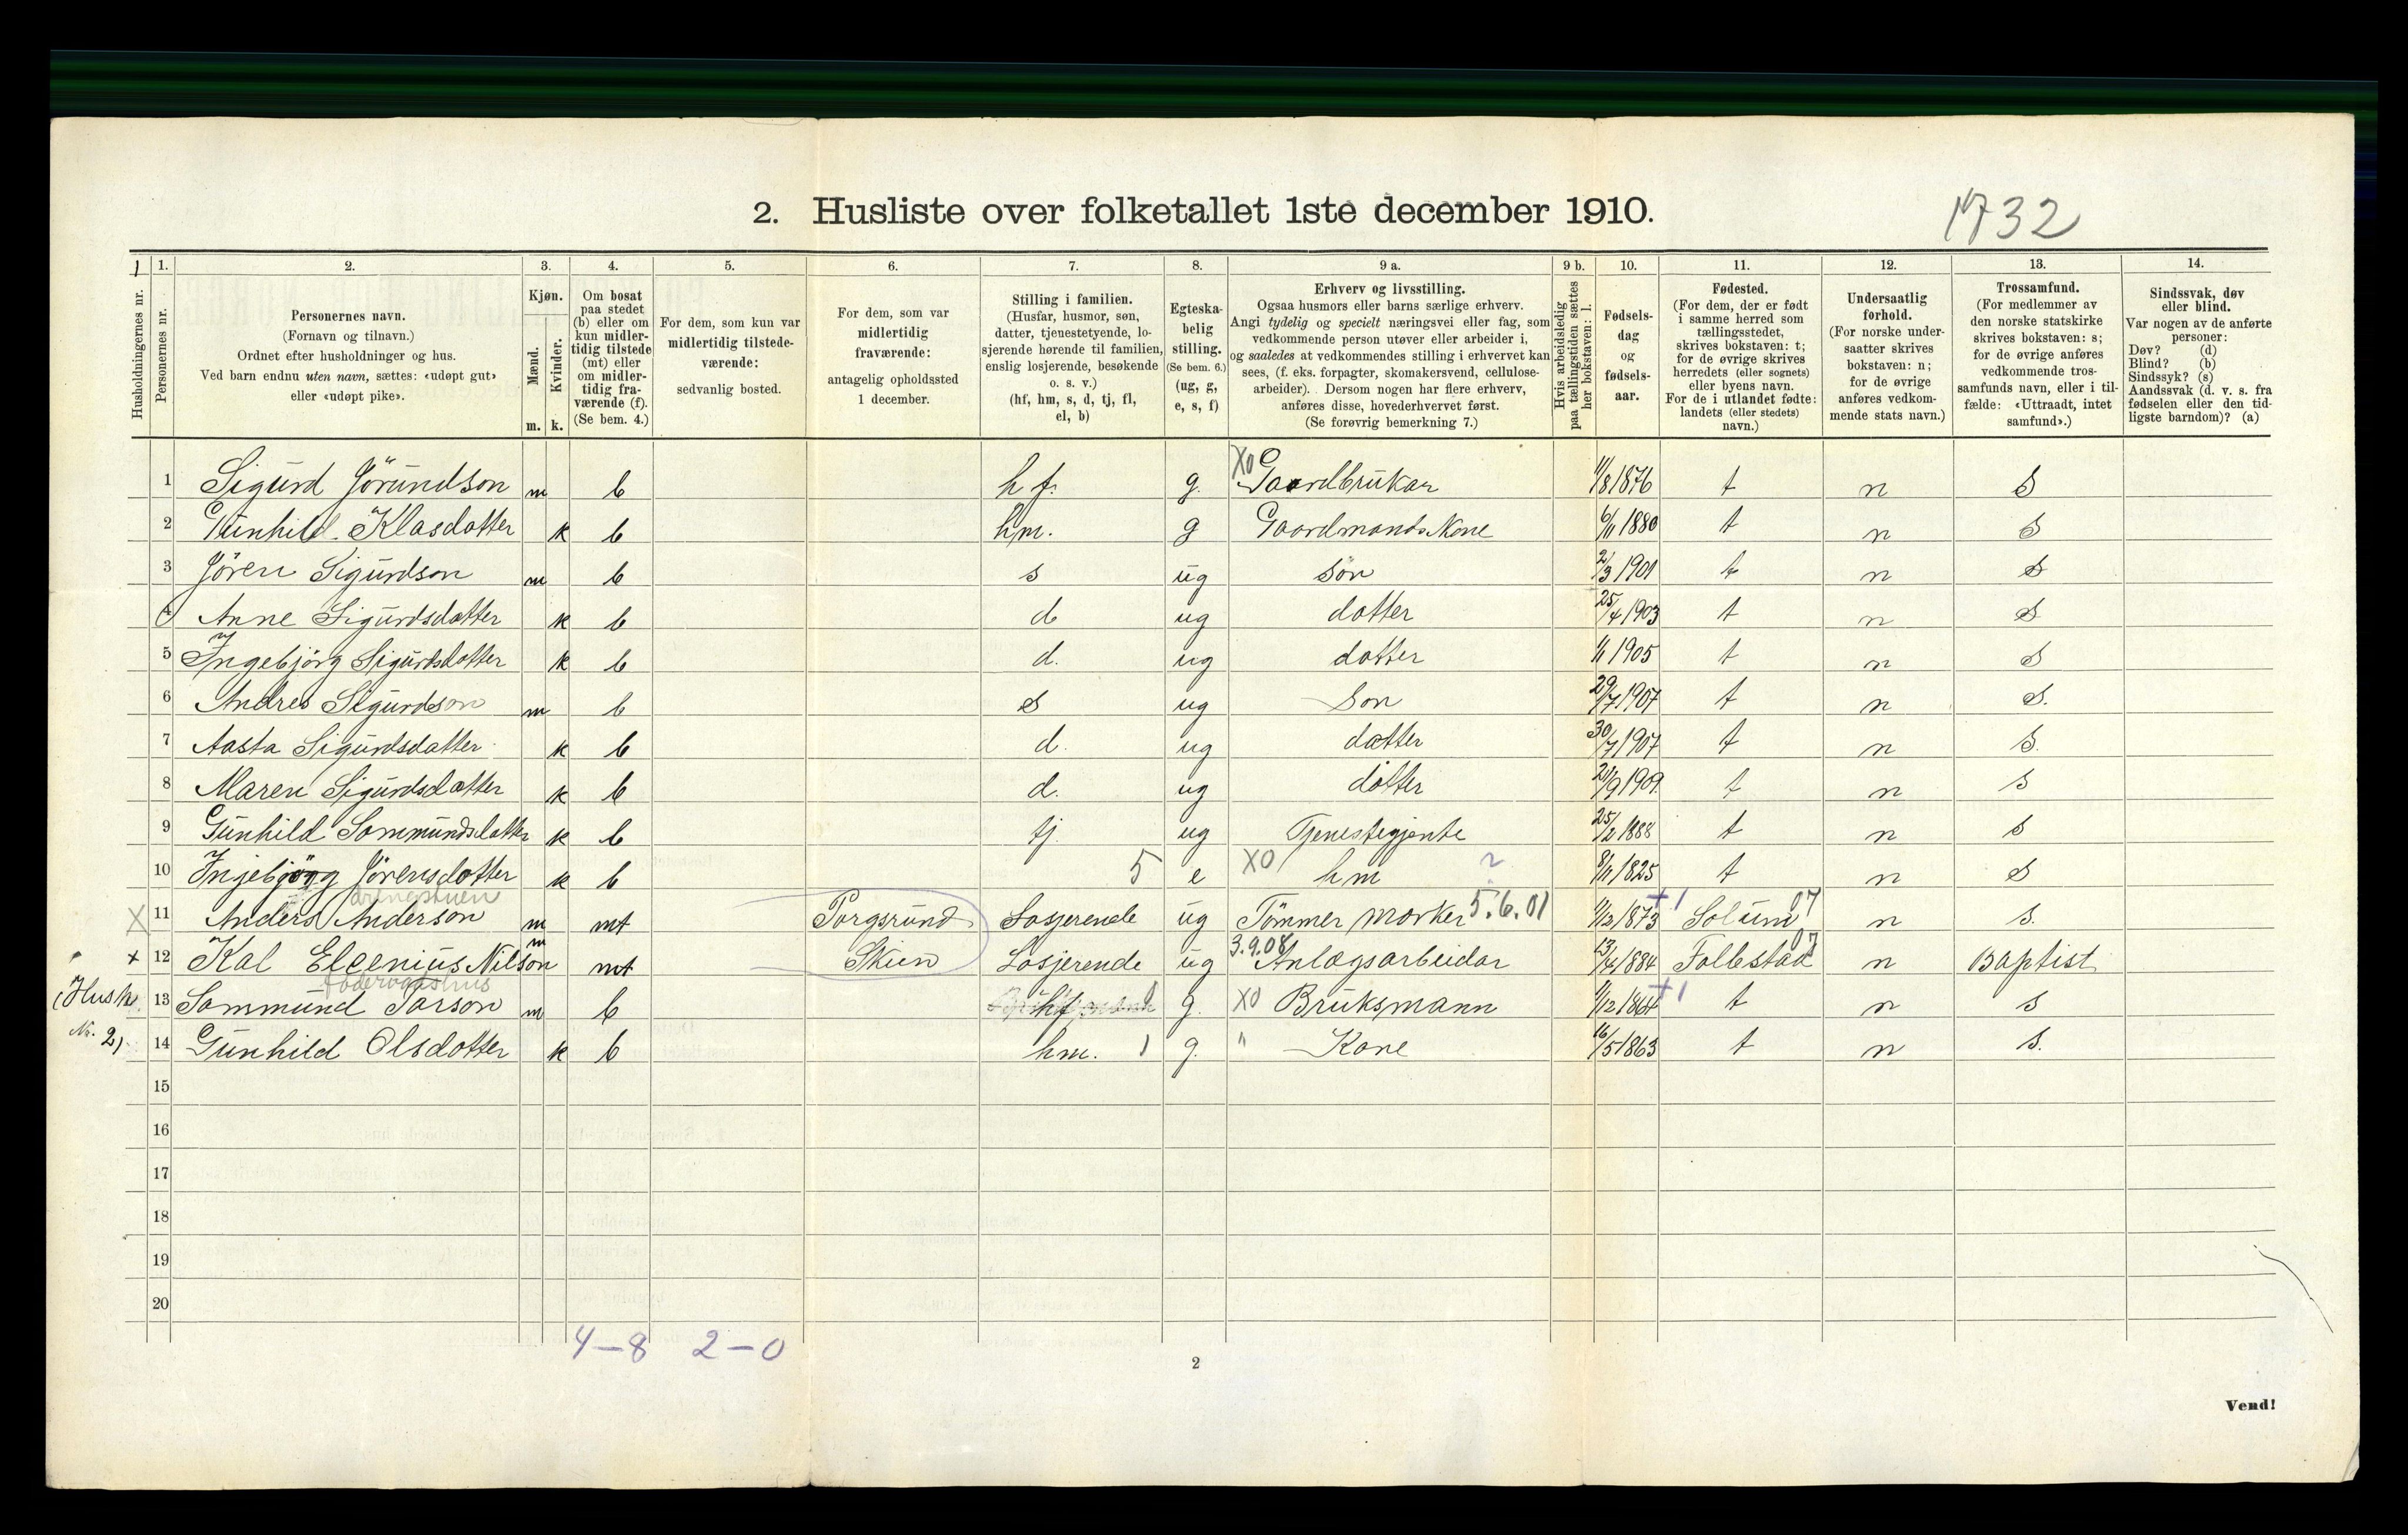 2. Husliste over folketallet 1ste december 1910.
1732
1
1. 2. 3. 4. 5. 6. 7. 8. 9 a. 9 b. 10. 11. 12. 13. 14.
Husholdningernes nr.
Personernes nr.
Personernes navn.
(Fornavn og tilnavn.)
Ordnet efter husholdninger og hus.
Ved barn endnu uten navn, sættes: «udøpt gut»
eller «udøpt pike».
Kjøn.
Mænd.
Kvinder.
m. k.
Om bosat
paa stedet
(b) eller om
kun midler-
tidig tilstede
(mt) eller
om midler-
tidig fra-
værende (f).
(Se bem. 4.)
For dem, som kun var
midlertidig tilstede-
værende:
sedvanlig bosted.
For dem, som var
midlertidig
fraværende:
antagelig opholdssted
1 december.
Stilling i familien.
(Husfar, husmor, søn,
datter, tjenestetyende, lo-
sjerende hørende til familien,
enslig losjerende, besøkende
o. s. v.)
(hf, hm, s, d, tj, fl,
el, b)
Egteska-
belig
stilling.
(Se bem. 6.)
(ug, g,
e, s, f)
Erhverv og livsstilling.
Ogsaa husmors eller barns særlige erhverv.
Angi tydelig og specielt næringsvei eller fag, som
vedkommende person utøver eller arbeider i,
og saaledes at vedkommendes stilling i erhvervet kan
sees, (f. eks. forpagter, skomakersvend, cellulose-
arbeider). Dersom nogen har flere erhverv,
anføres disse, hovederhvervet først.
(Se forøvrig bemerkning 7.)
Hvis arbeidsledig
paa tællingstiden sættes
her bokstaven: l.
Fødsels-
dag
og
fødsels-
aar.
Fødested.
(For dem, der er født
i samme herred som
tællingsstedet,
skrives bokstaven: t;
for de øvrige skrives
herredets (eller sognets)
eller byens navn.
For de i utlandet fødte:
landets (eller stedets)
navn.)
Undersaatlig
forhold.
(For norske under-
saatter skrives
bokstaven: n;
for de øvrige
anføres vedkom-
mende stats navn.)
Trossamfund.
(For medlemmer av
den norske statskirke
skrives bokstaven: s;
for de øvrige anføres
vedkommende tros-
samfunds navn, eller i til-
fælde: «Uttraadt, intet
samfund».)
Sindssvak, døv
eller blind.
Var nogen av de anførte
personer:
Døv? (d)
Blind? (b)
Sindssyk? (s)
Aandssvak (d. v. s. fra
fødselen eller den tid-
ligste barndom)? (a)
1 Sigurd Jörundson m b hf. g. XO Gaardbrukar 11/8 1876 t n S
2 Gunhild Klasdatter k b hm. g Gaardmands Kone 6/11 1880 t n S
3 Jören Sigurdson m b s ug sön 2/3 1901 t n S
4 Anne Sigurdsdatter k b d ug dotter 25/4 1903 t n S
5 Ingebjörg Sigurdsdotter k b d. ug dotter 1/1 1905 t n S
6 Andres Sigurdson m b S ug Son 29/7 1907 t n S.
7 Aasta Sigurdsdatter k b d. ug datter 30/7 1907 t n S.
8 Maren Sigurdsdatter k b d. ug dotter 21/9 1909. t n S
9 Gunhild Sammundsdatter k b tj. ug Tjenestegjente 25/2 1888 t n S
10 Injebjörg Jörensdotter k b 5 e XO hm ? 8/11 1825 t n S
X 11 Anders Anderson m mt Porgsrund Losjerende ug Tömmer morker 5.6.01 11/12 1873 +1 Solum 07 n S.
x 12 Kal Elcenius Nilson m mt Skien Losjerende ug 3.9.08 Anlægsarbeidar 13/4 1884 Follestad 07 n Baptist
Födorodshus
(Hush. 13 Sommund Torson m b hf 1 g. XO Bruksmann 11/12 1864 +1 t n S
Nr. 2) 14 Gunhild Olsdotter k b hm. 1 g. " Kone 16/5 1863 t n S.
15
16
17
18
19
20
4-8 2-0
2
Vend!